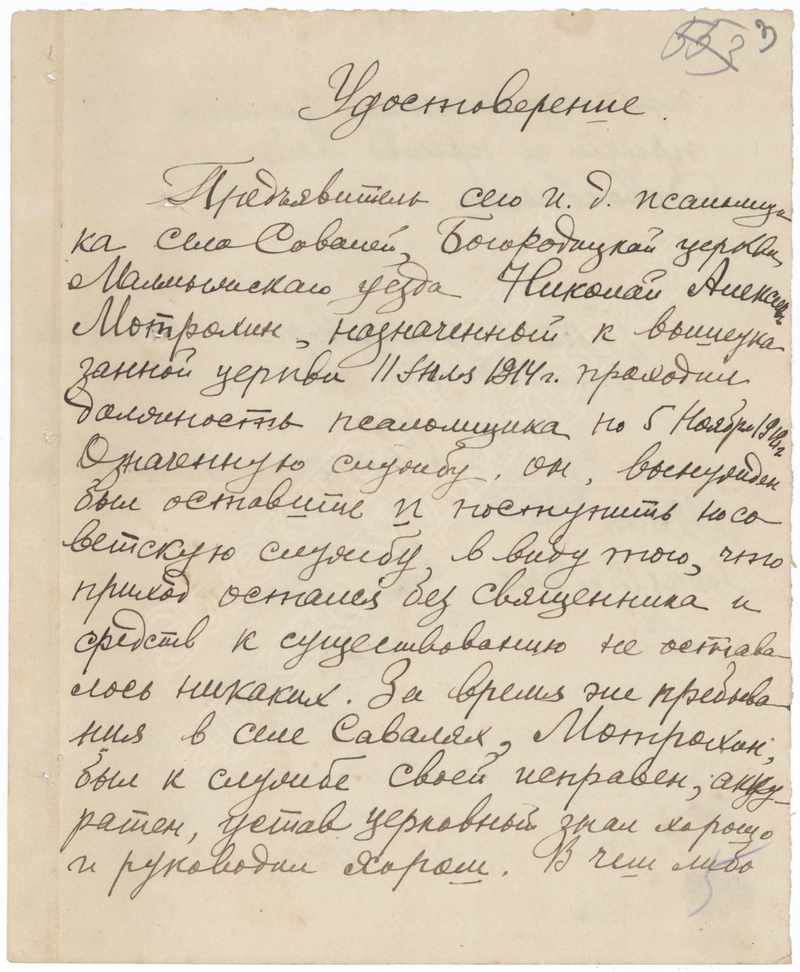 553 3
Удостоверение.
Предъявитель сего и. д. псаломщи-
ка села Совалей, Богородицкой церкви,
Малмыжскаго уезда Николай Алексеев
Мотрохин, назначенный к вышеука
занной церкви 11 Июля 1914 г. проходил
должность псаломщика по 5 Ноября
Означенную службу, он, вынужден
был оставить и поступить на со
ветскую службу, в виду того, что
приход остался без священника и
средств к существованию не остава-
лось никаких. За время же пребыва
ния в селе Савалях, Мотрохин,
был к службе своей исправен, акку-
ратен, устав церковный знал хорошо
и руководил хором. В чем либо